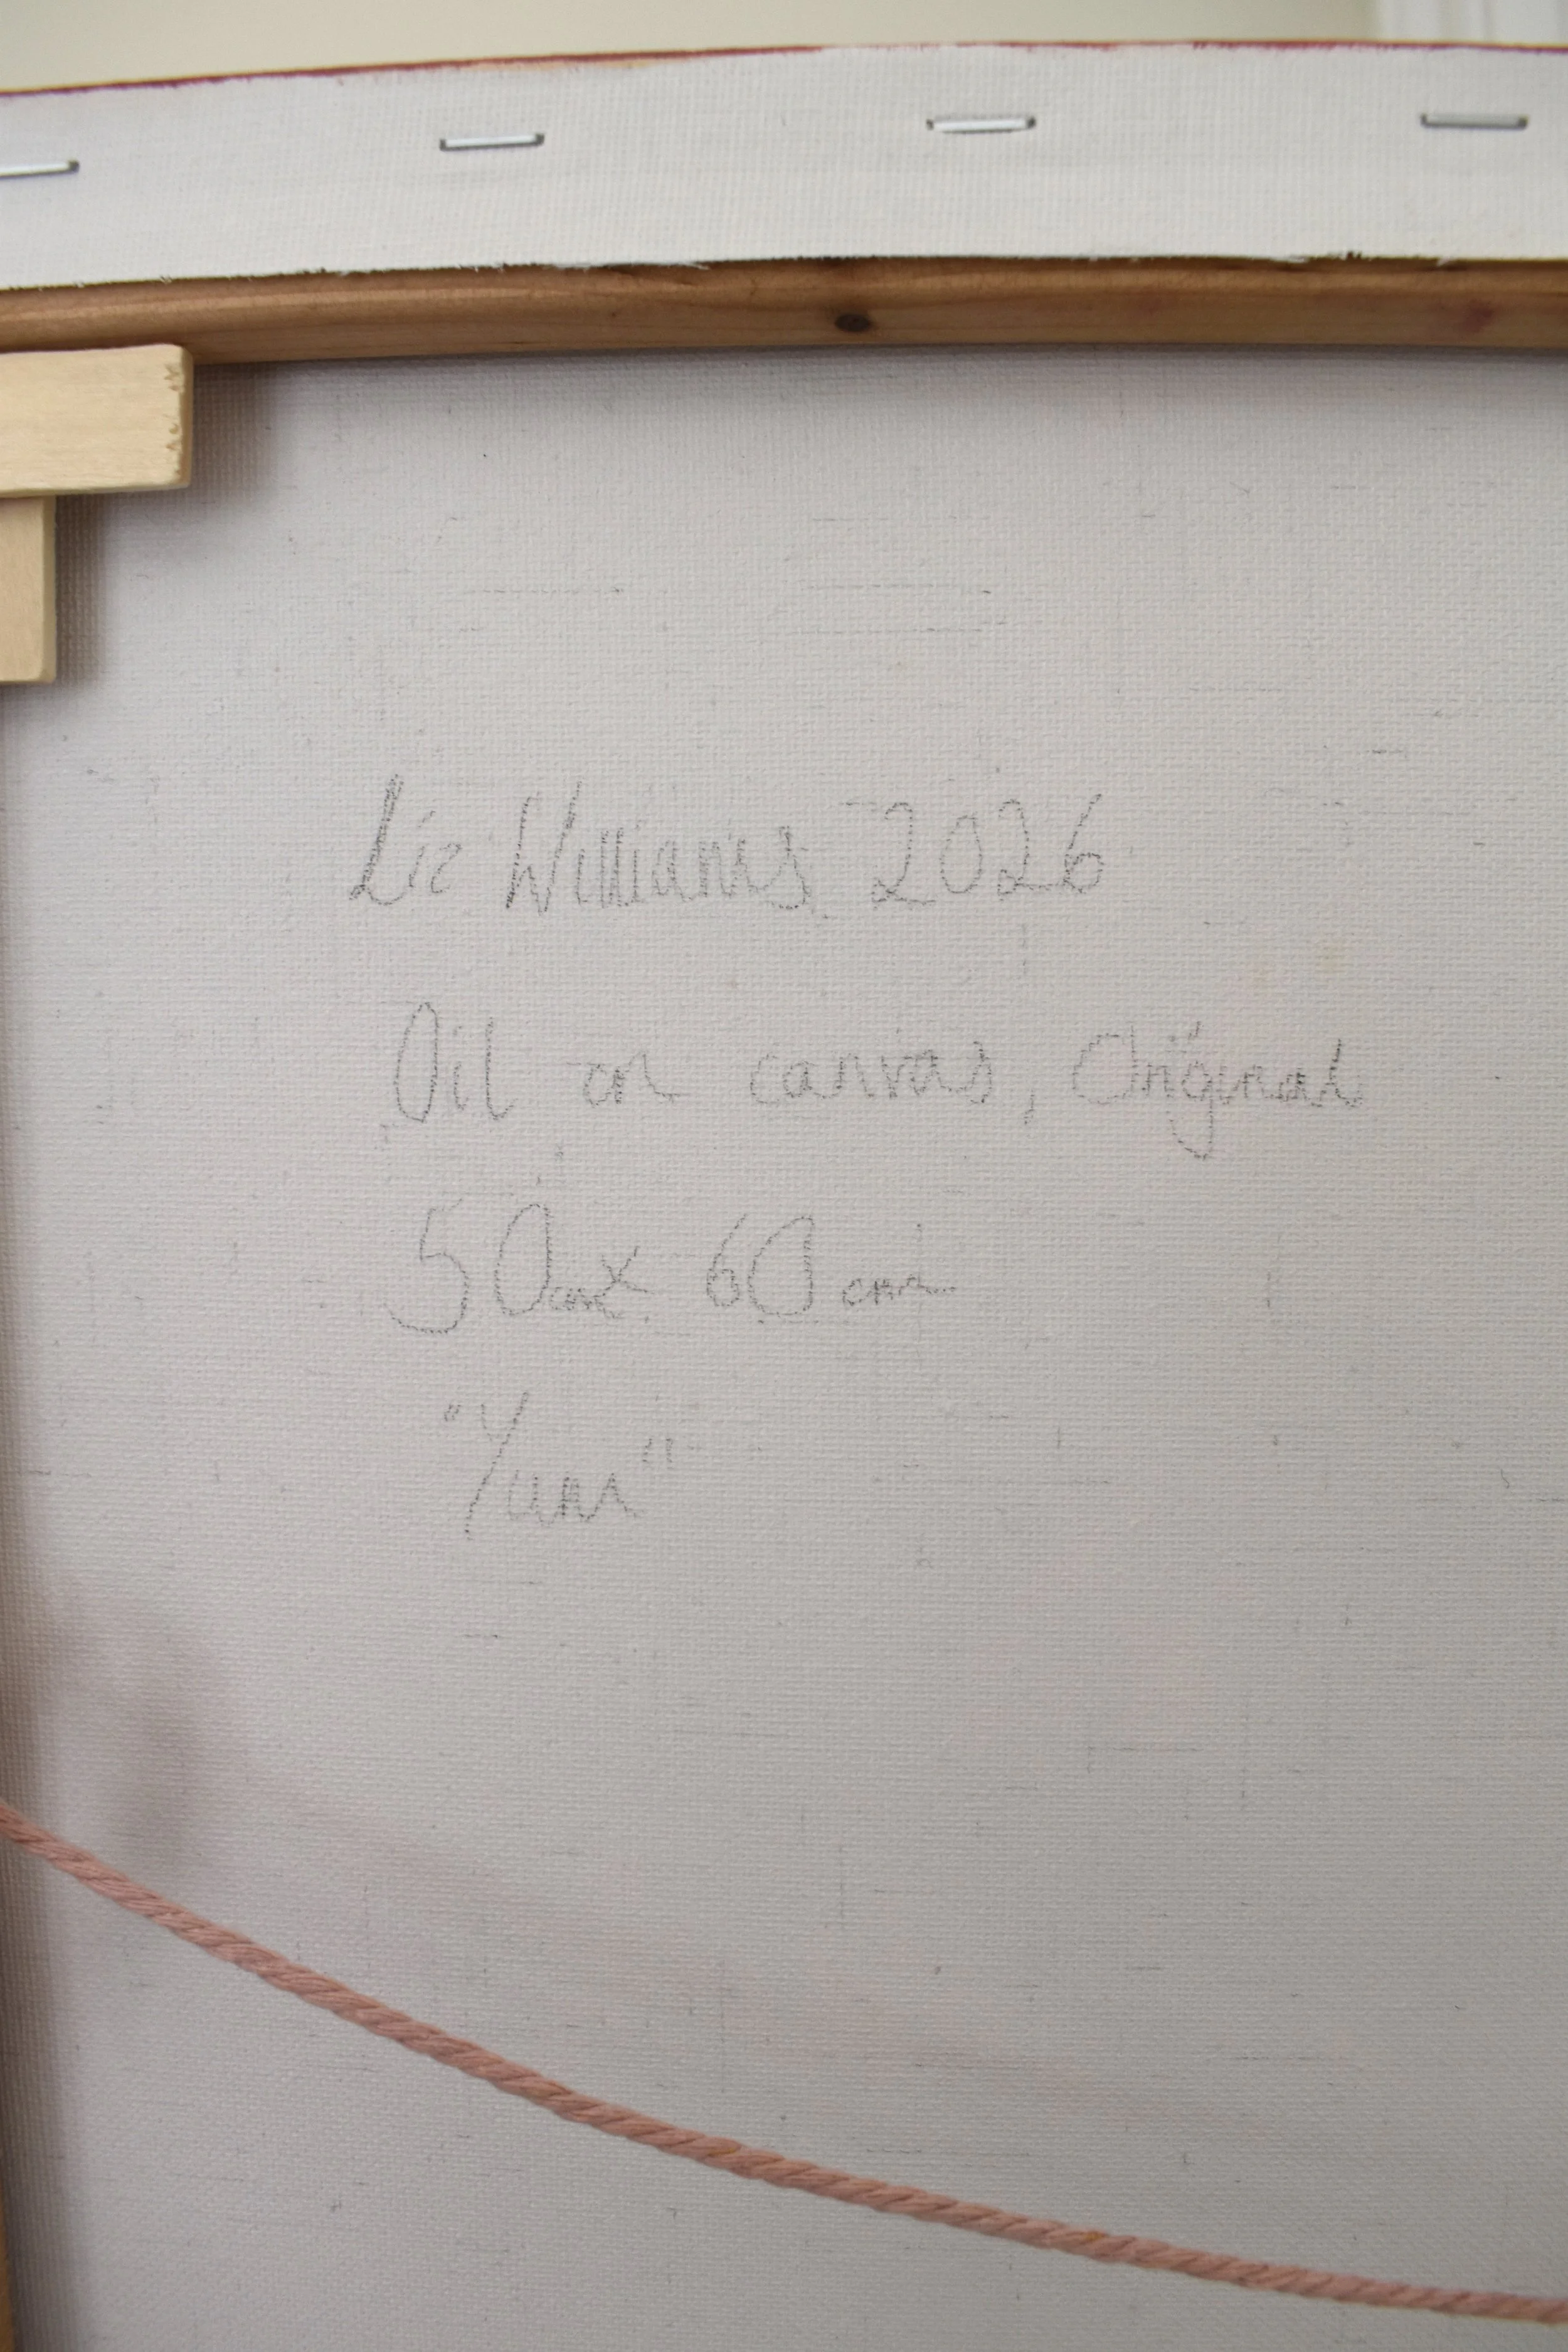 Liz Williams 2026
Oil on canvas, Original
50cm x 60cm
"Yuni"